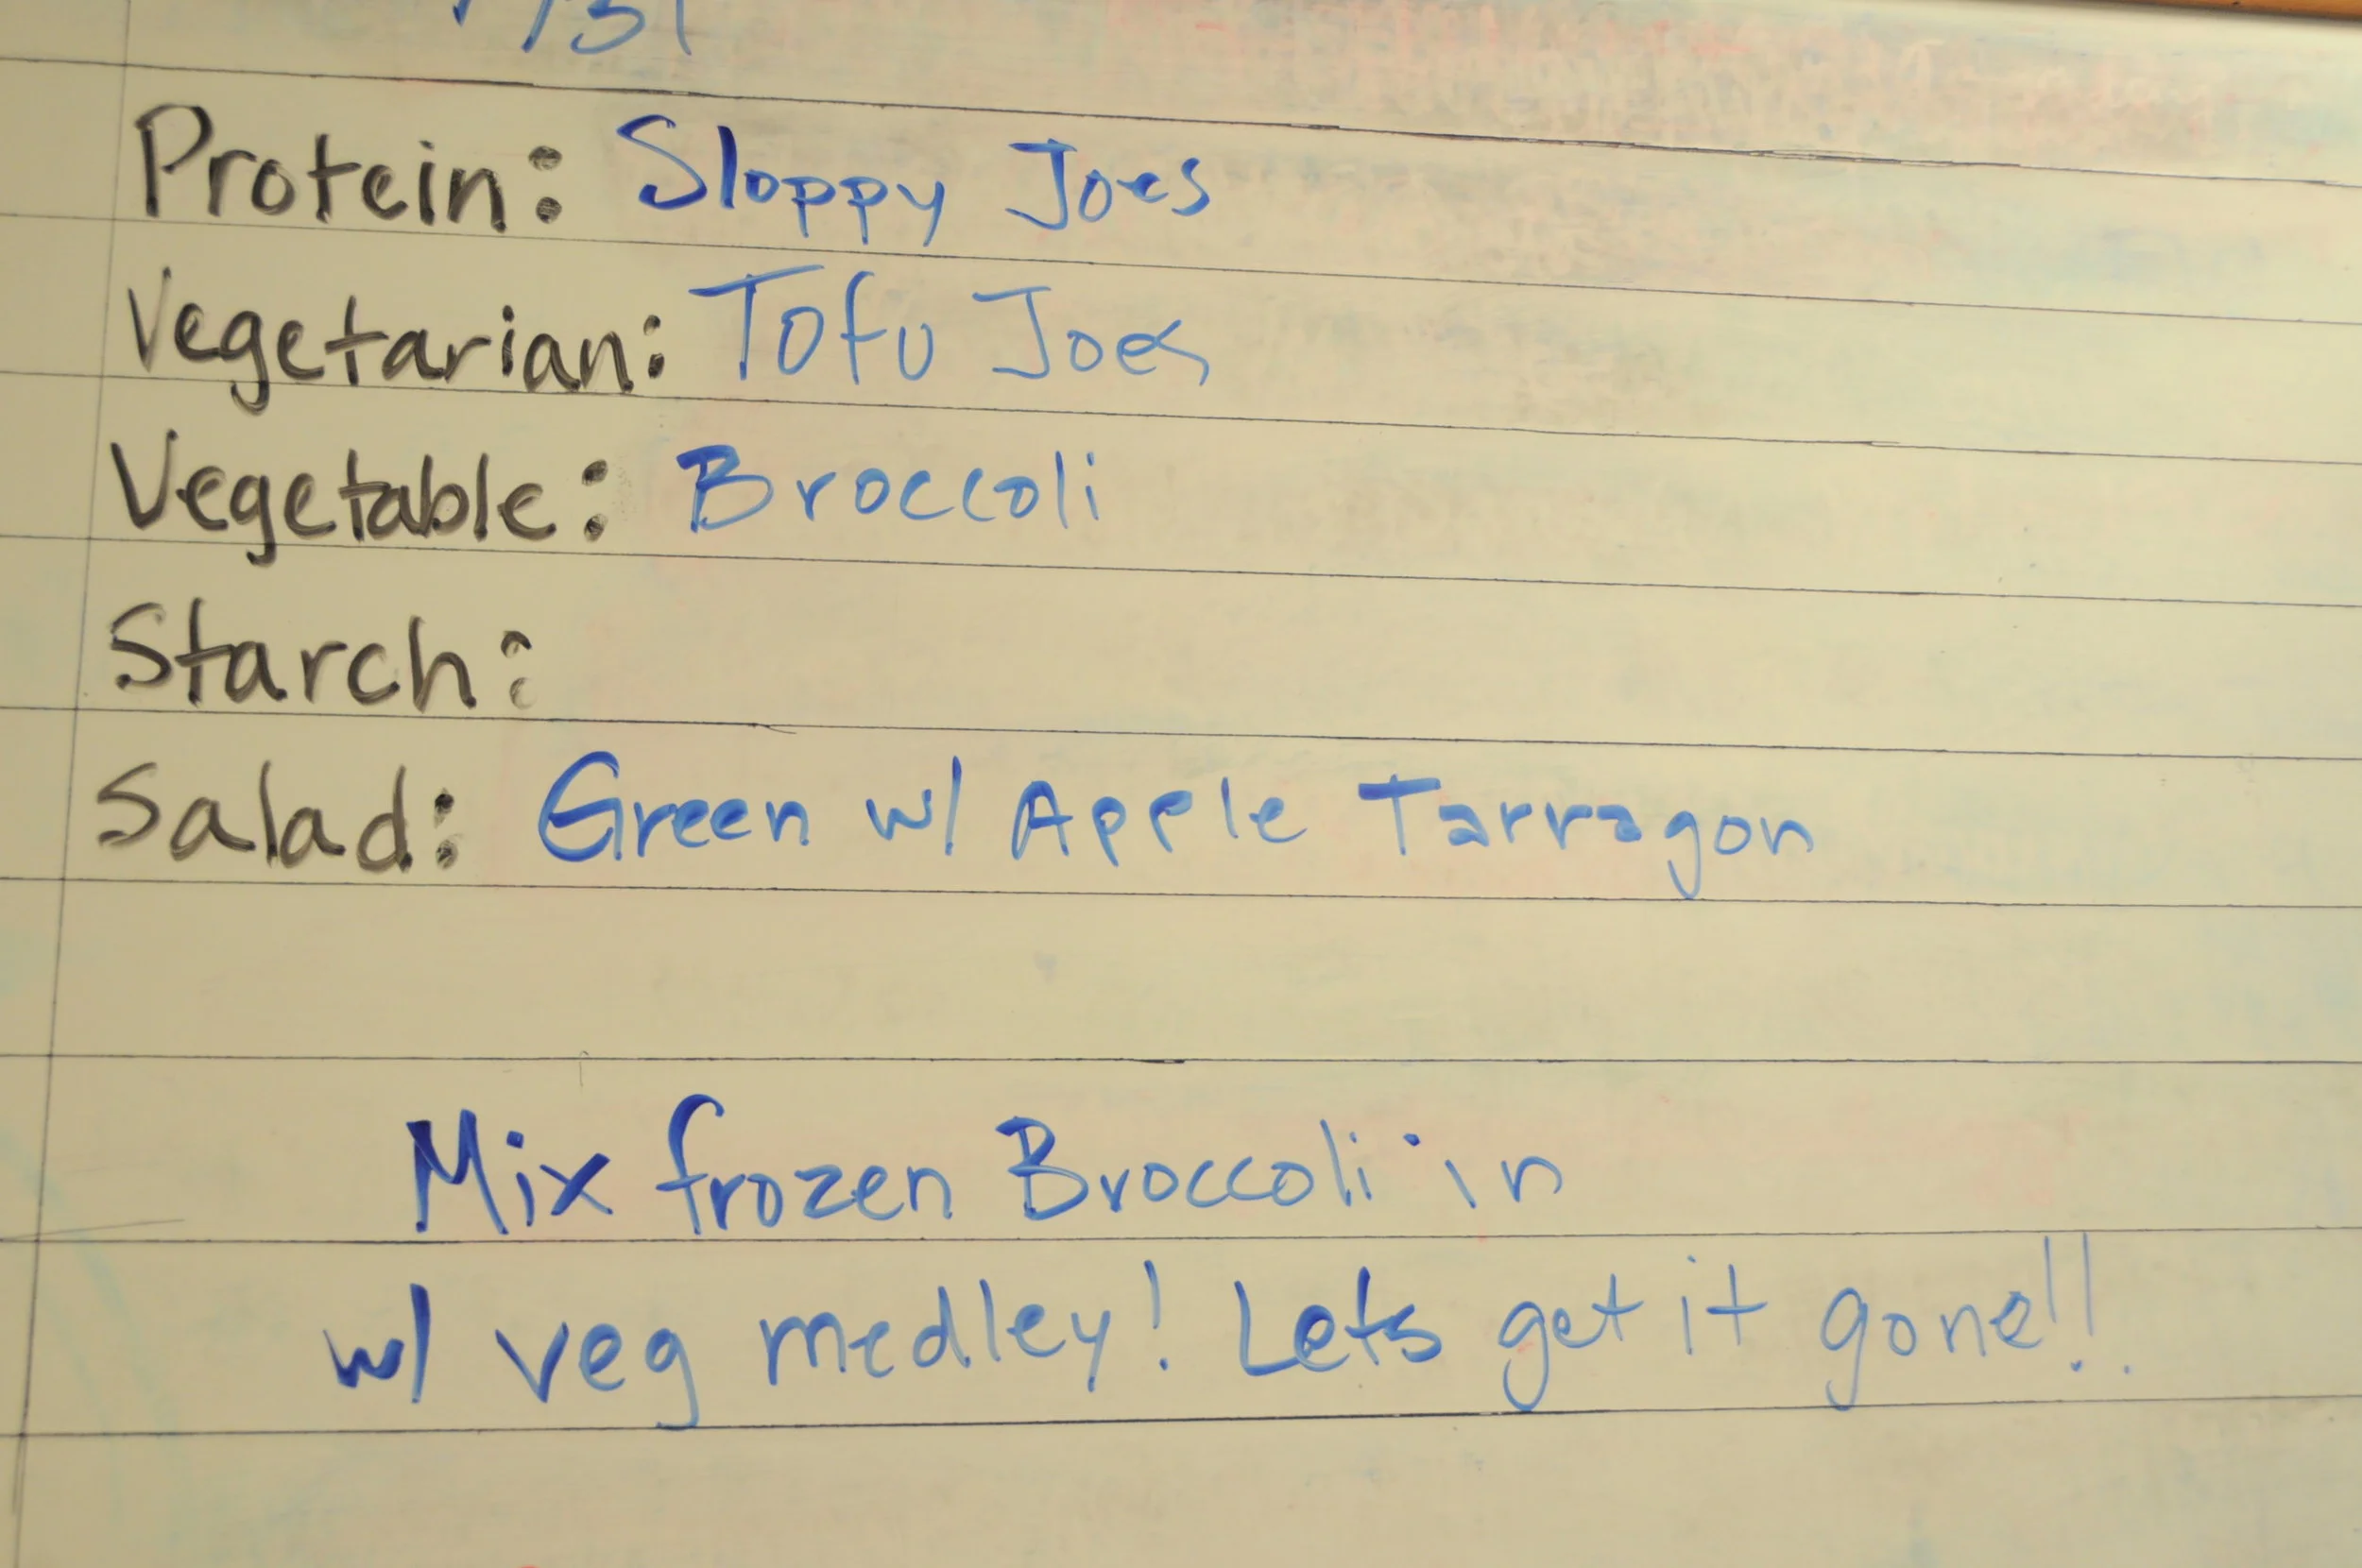 Protein: Sloppy Joes
Vegetarian: Tofu Joes
Vegetable: Broccoli
Starch:
Salad: Green w/ Apple Tarragon
Mix frozen Broccoli in
w/ veg medley! Lets get it gone!!